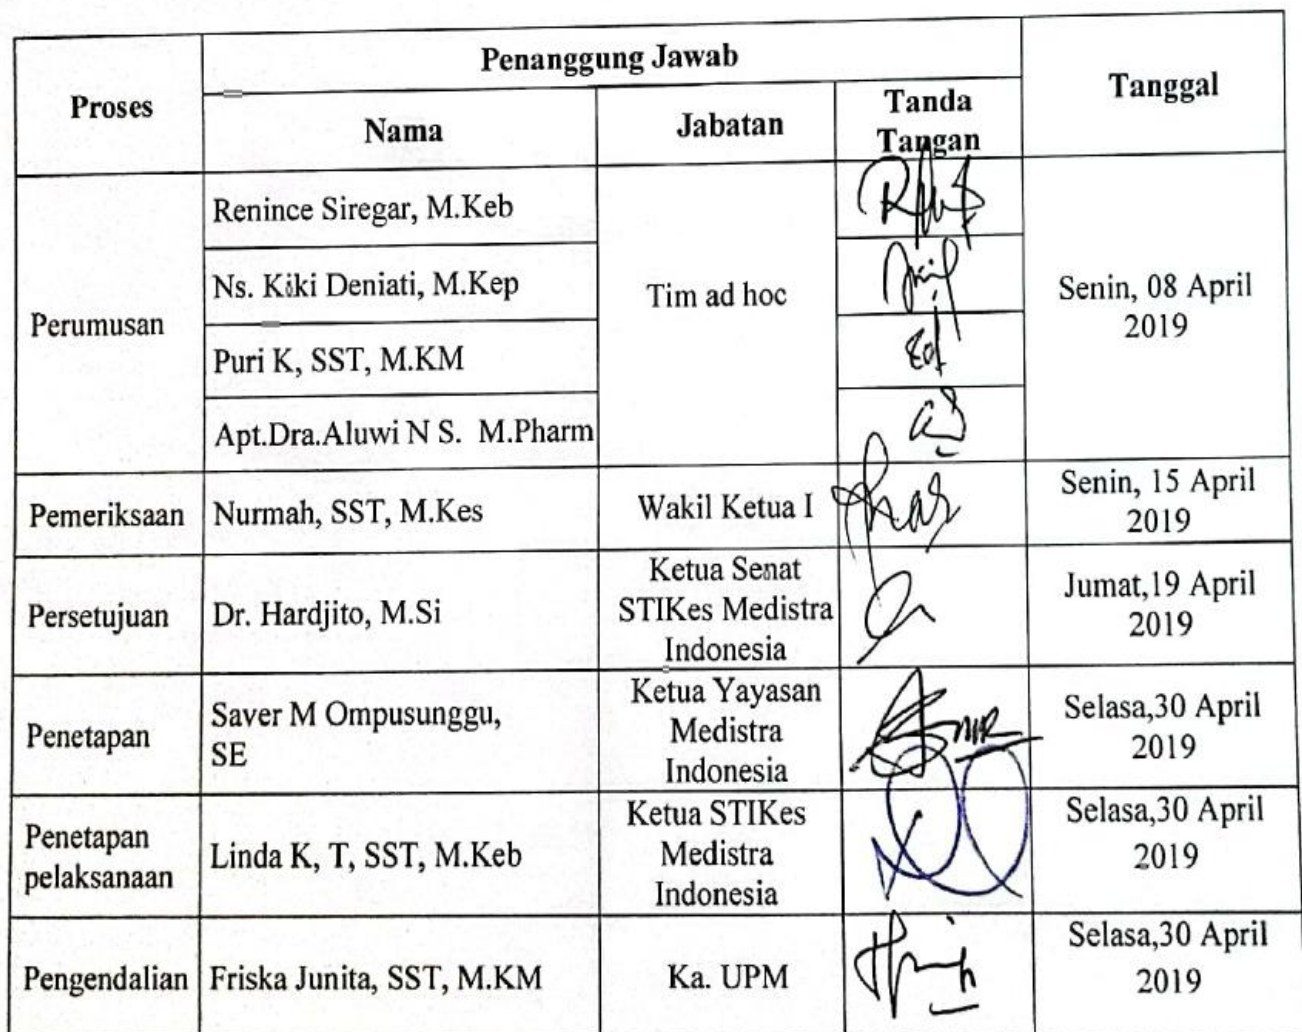 Proses
Penanggung Jawab
Tanggal
Nama
Jabatan
Tanda
Tangan
Perumusan
Renince Siregar, M.Keb
Ns. Kiki Deniati, M.Kep
Puri K, SST, M.KM
Apt.Dra.Aluwi N S. M.Pharm
Tim ad hoc
Senin, 08 April
2019
Pemeriksaan
Nurmah, SST, M.Kes
Wakil Ketua I
Senin, 15 April
2019
Persetujuan
Dr. Hardjito, M.Si
Ketua Senat
STIKes Medistra
Indonesia
Jumat,19 April
2019
Penetapan
Saver M Ompusunggu,
SE
Ketua Yayasan
Medistra
Indonesia
Selasa,30 April
2019
Penetapan
pelaksanaan
Linda K, T, SST, M.Keb
Ketua STIKes
Medistra
Indonesia
Selasa,30 April
2019
Pengendalian
Friska Junita, SST, M.KM
Ka. UPM
Selasa,30 April
2019